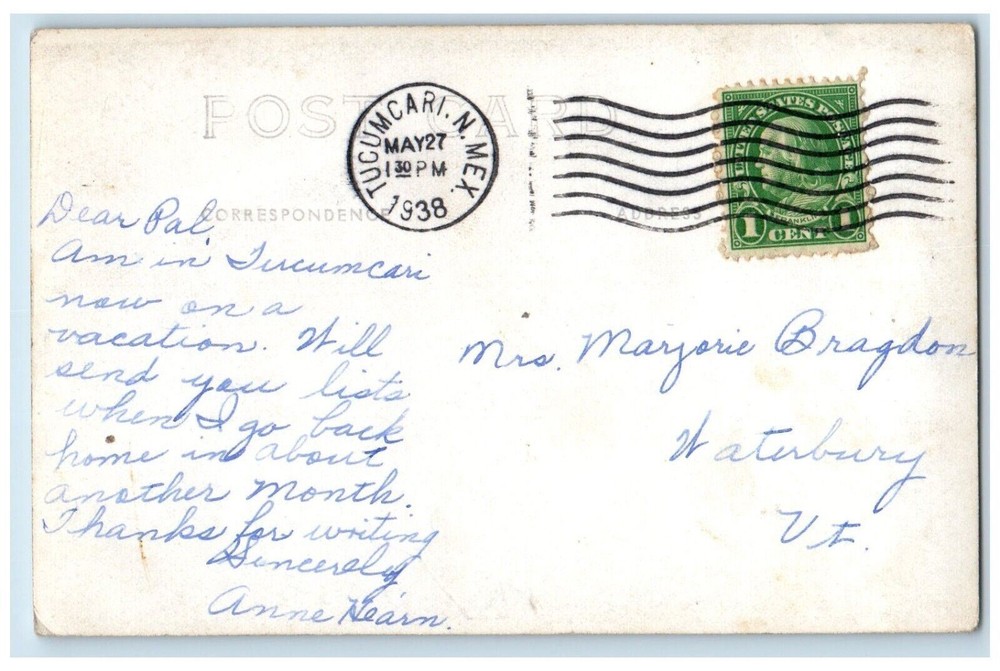 POST CARD
TUCUMCARI, N. MEX
MAY 27
1 30 PM
1938
UNITED STATES POSTAGE
FRANKLIN
1 CENT 1
CORRESPONDENCE
ADDRESS
Dear Pal
Am in Tucumcari
now on a
vacation. Will
send you lists
when I go back
home in about
another month.
Thanks for writing
Sincerely
Anne Hearn.
Mrs. Marjorie Bragdon
Waterbury
Vt.